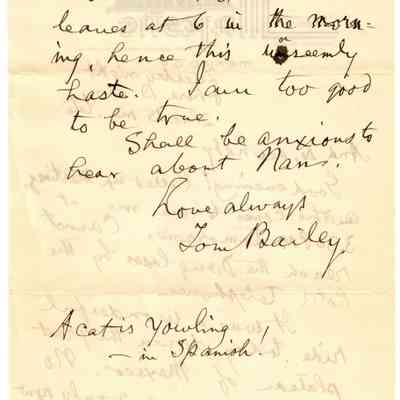 leaves at 6 in the morn-
ing, hence this unseemly
haste. I am too good
to be true.
Shall be anxious to
hear about Nans.
Love always
Tom Bailey
A cat is yowling
– in Spanish!